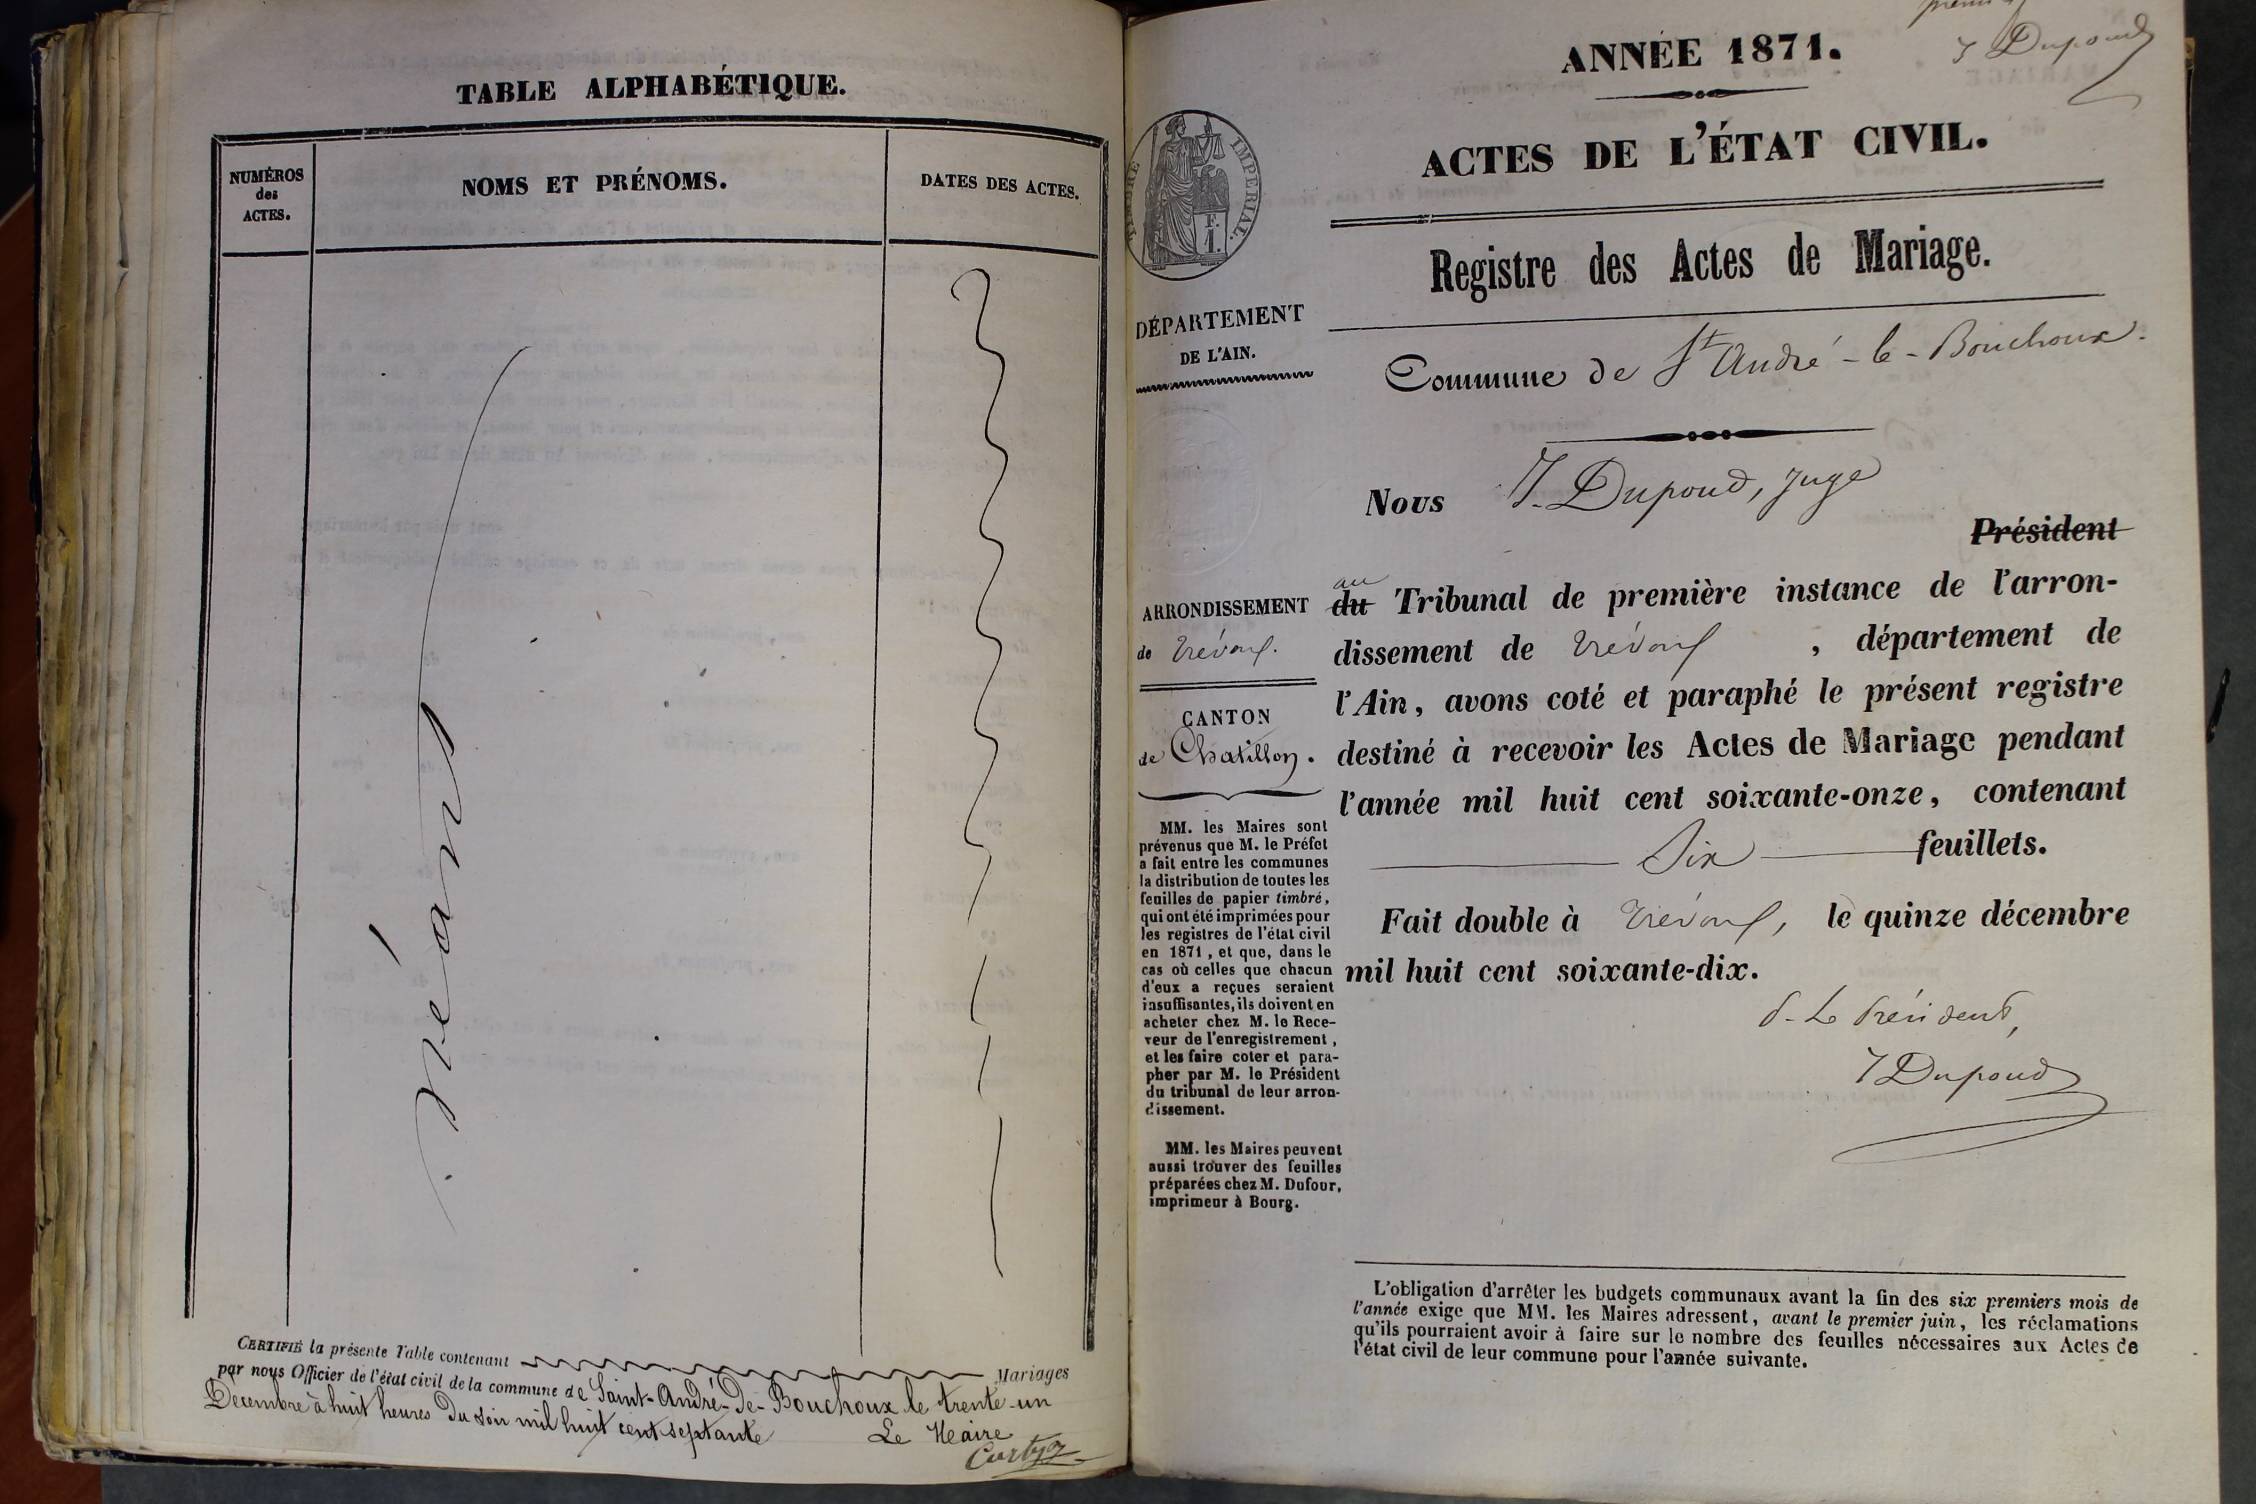 TABLE ALPHABÉTIQUE.
NUMÉROS
des
ACTES.
NOMS ET PRÉNOMS.
DATES DES ACTES.
Néant
CERTIFIÉ la présente Table contenant Mariages
par nous Officier de l'état civil de la commune de Saint-André-De-Bouchoux le trente-un
Décembre à huit heures du soir mil huit cent septante
Le Maire
ANNÉE 1871.
J Dupoud
ACTES DE L'ÉTAT CIVIL.
TIMBRE IMPÉRIAL.
F.
1.
Registre des Actes de Mariage.
DÉPARTEMENT
DE L'AIN.
Commune de St André-le-Bouchoux.
Nous J. Dupoud, juge
Président
au
du Tribunal de première instance de l'arron-
dissement de Trévoux , département de
l'Ain, avons coté et paraphé le présent registre
destiné à recevoir les Actes de Mariage pendant
l'année mil huit cent soixante-onze, contenant
Six feuillets.
Fait double à Trévoux, le quinze décembre
mil huit cent soixante-dix.
P. Le Président,
J Dupoud
ARRONDISSEMENT
de Trévoux.
CANTON
de Chatillon.
MM. les Maires sont
prévenus que M. le Préfet
a fait entre les communes
la distribution de toutes les
feuilles de papier timbré,
qui ont été imprimées pour
les registres de l'état civil
en 1871, et que, dans le
cas où celles que chacun
d'eux a reçues seraient
insuffisantes, ils doivent en
acheter chez M. le Rece-
veur de l'enregistrement,
et les faire coter et para-
pher par M. le Président
du tribunal de leur arron-
dissement.
MM. les Maires peuvent
aussi trouver des feuilles
préparées chez M. Dufour,
imprimeur à Bourg.
L'obligation d'arrêter les budgets communaux avant la fin des six premiers mois de
l'année exige que MM. les Maires adressent, avant le premier juin, les réclamations
qu'ils pourraient avoir à faire sur le nombre des feuilles nécessaires aux Actes de
l'état civil de leur commune pour l'année suivante.